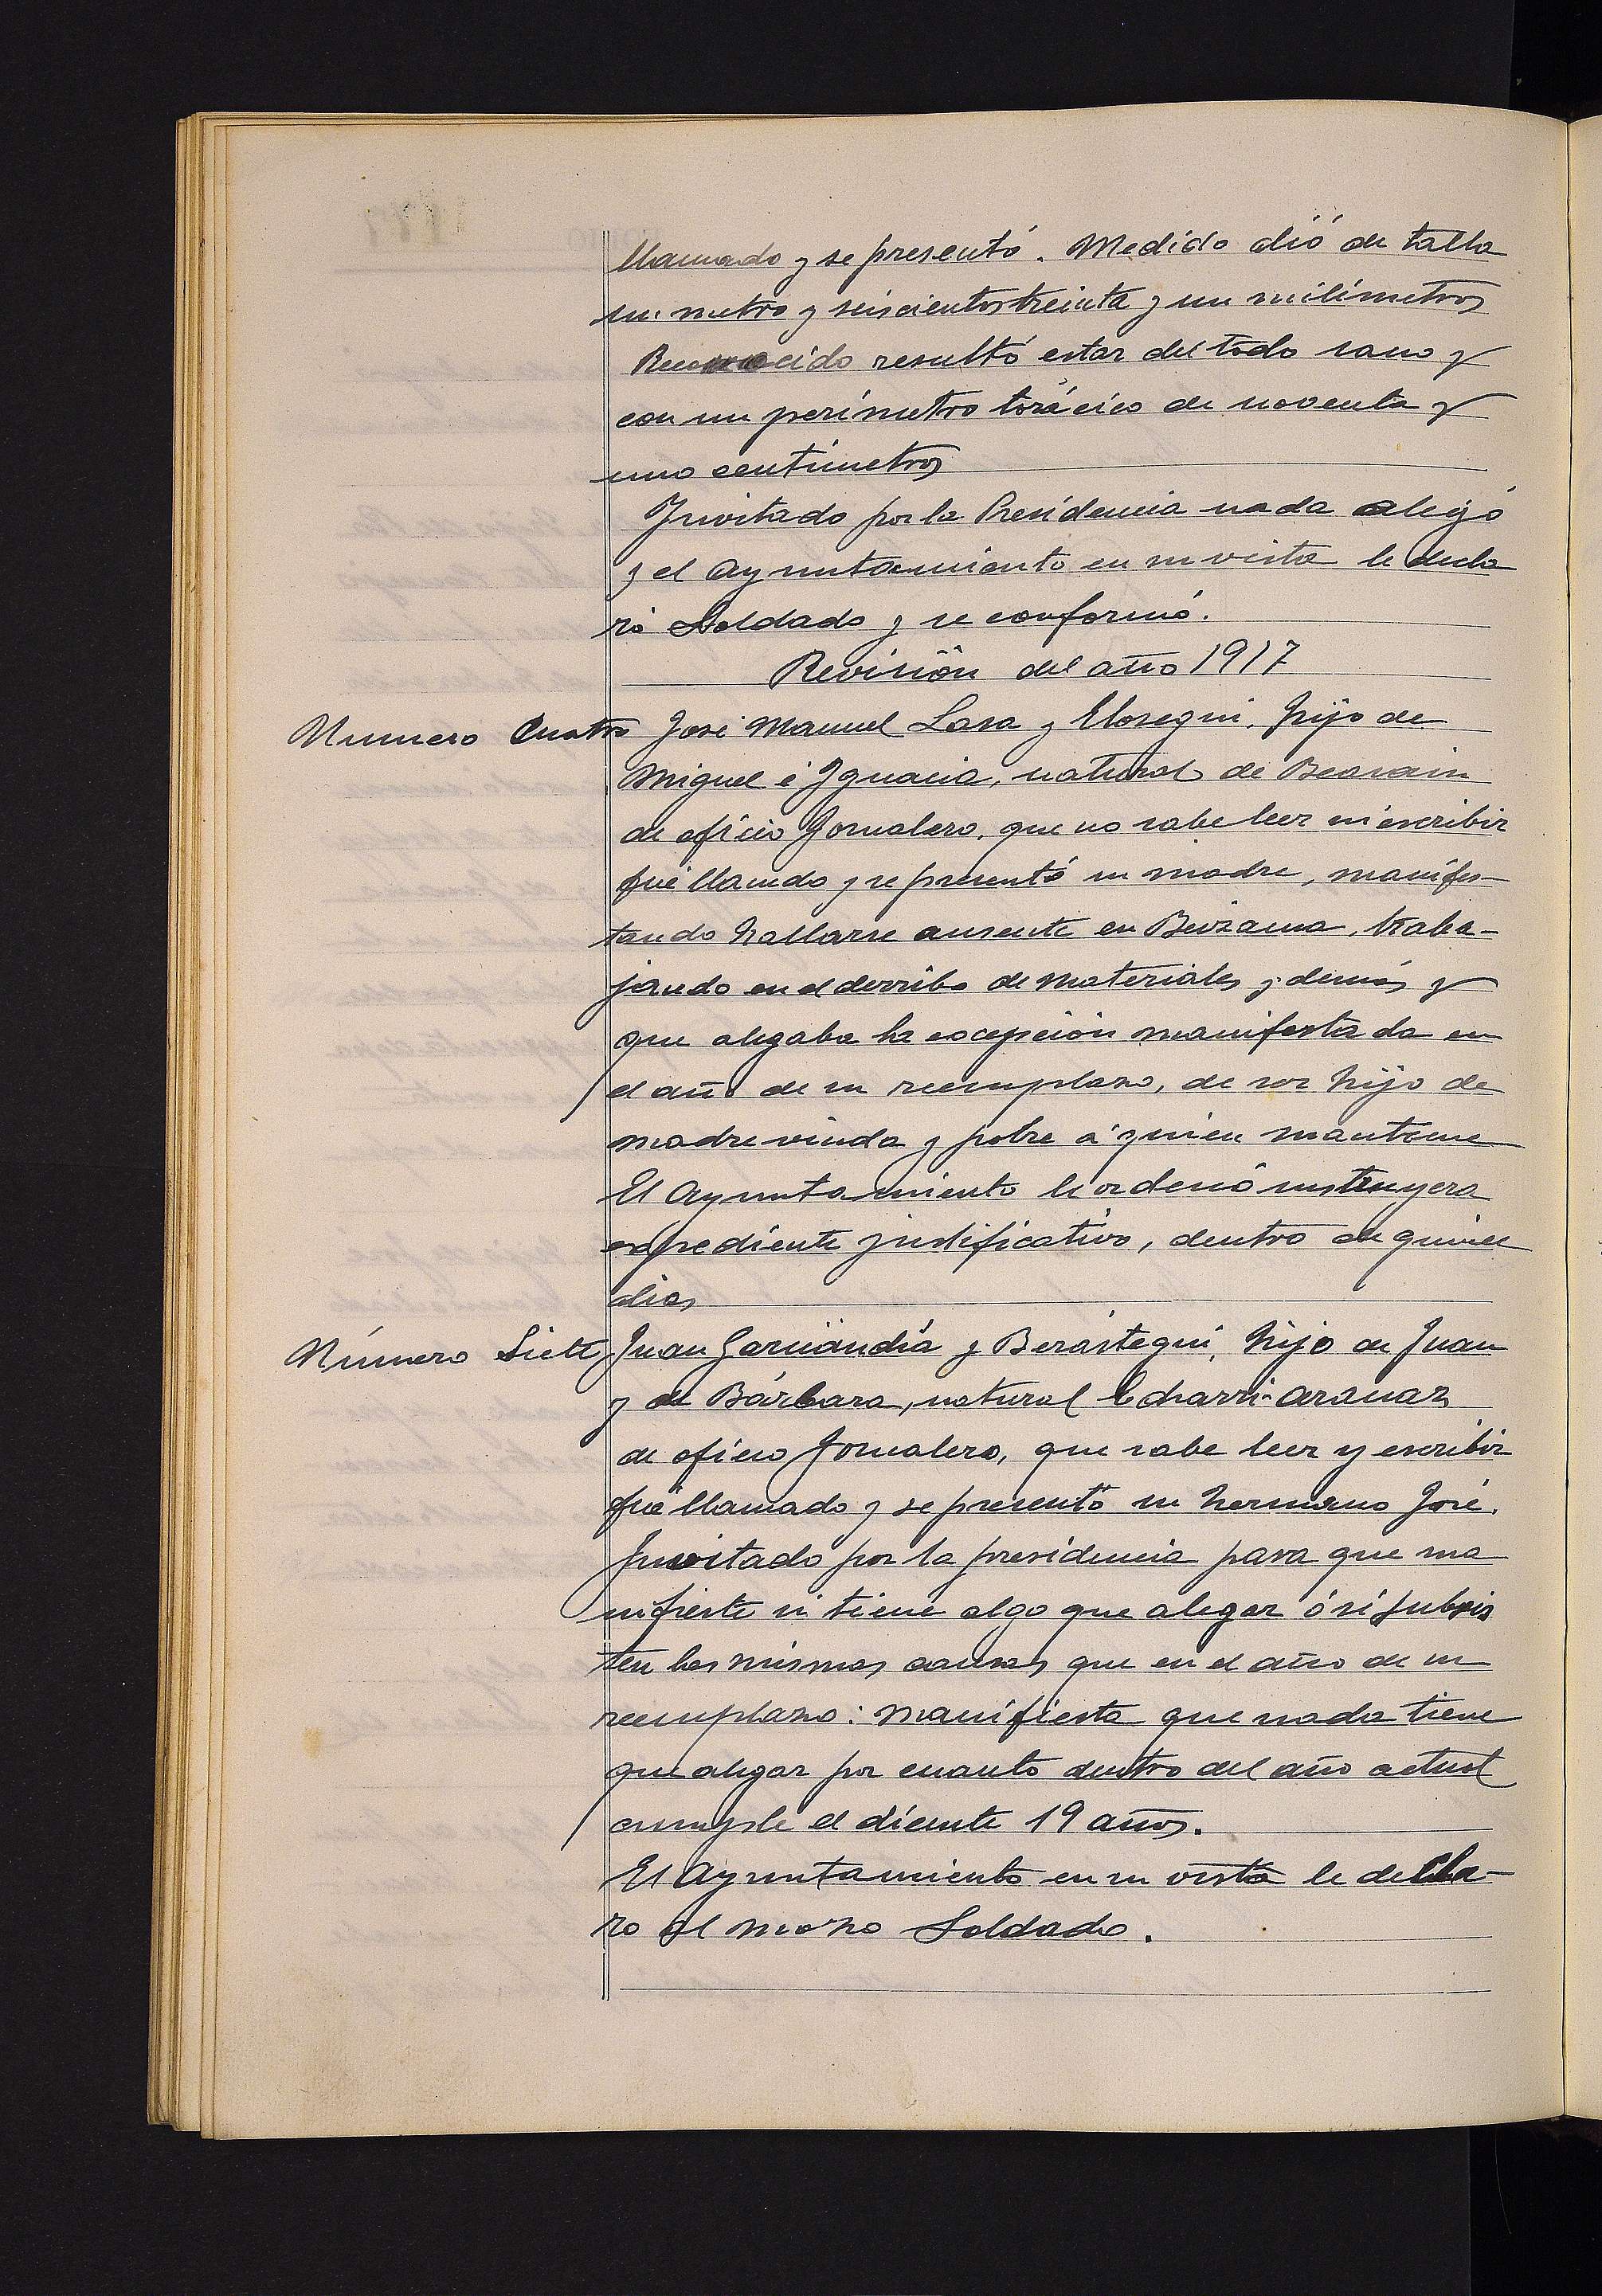 llamado y se presentó. Medido dió de talla
un metro y seiscientos treinta y un milímetros
Reconocido resultó estar del todo sano y
con un perímetro torácico de noventa y
uno centímetros
Invitado por la Presidencia nada alegó
y el Ayuntamiento en su vista le decla
ró Soldado y se conformó.
Revisión del año 1917
Numero Cuatro José Manuel Lasa y Elosegui, hijo de
Miguel é Ignacia, natural de Beasain
de oficio Jornalero, que no sabe leer ni escribir
fué llamado y se presentó su madre, manifes-
tando hallarse ausente en Beizama, traba-
jando en el derribo de materiales y demás y
que alegaba la escepción manifestada en
el año de su reemplazo, de ser hijo de
madre viuda y pobre á quien mantiene
El Ayuntamiento le ordenó instruyera
expediente justificativo, dentro de quince
dias
Número Siete Juan Garmendia y Berástegui, hijo de Juan
y de Bárbara, natural Echarri-aranaz
de oficio Jornalero, que sabe leer y escribir
fué llamado y se presentó su hermano José.
Invitado por la presidencia para que ma
nifieste si tiene algo que alegar ó si subsis
ten las mismas causas que en el año de su
reemplazo: manifiesta que nada tiene
que alegar por cuanto dentro del año actual
cumple el dicente 19 años.
El Ayuntamiento en su vista le decla-
ro al mozo Soldado.